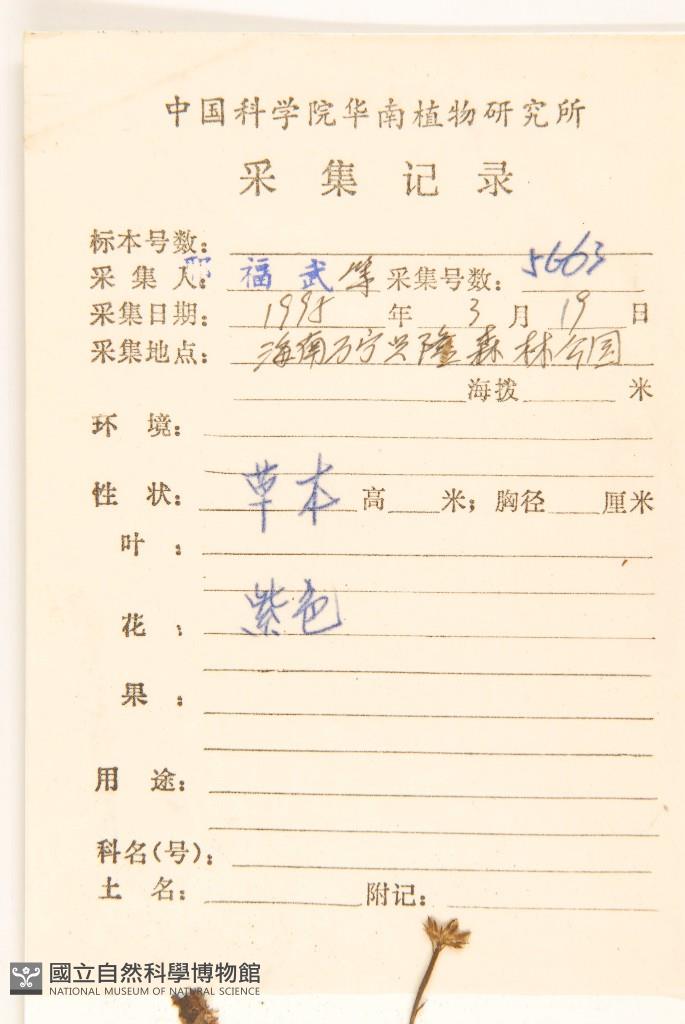 中国科学院华南植物研究所
采集记录
标本号数：
采集人：邢福武等 采集号数：5663
采集日期：1998年3月19日
采集地点：海南万宁兴隆森林公园
海拨 米
环境：
性状：草本 高 米；胸径 厘米
叶：
花：紫色
果：
用途：
科名(号)：
土名： 附记：
國立自然科學博物館
NATIONAL MUSEUM OF NATURAL SCIENCE